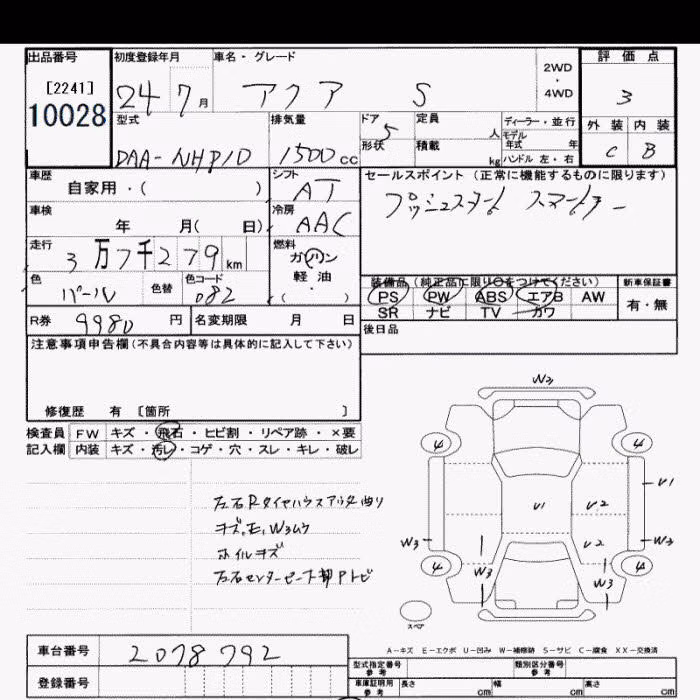 出品番号 初度登録年月 車名・グレード 評価点
[2241] 24 7月 アクア S 2WD・4WD 3
10028 型式 排気量 ドア 定員 ディーラー・並行 外装 内装
5 人 モデル年式 年
DAA-NHP10 1500cc 形状 積載 kg ハンドル 左・右 C B
車歴 シフト セールスポイント(正常に機能するものに限ります)
自家用・( ) AT プッシュスタート スマートキー
車検 冷房
年 月( 日) AAC
走行 燃料
3万7千279km ガソリン
色 色替 色コード 軽油 装備品(純正品に限り○をつけてください) 新車保証書
パール 082 ・( ) PS PW ABS エアB AW 有・無
R券 9980円 名変期限 月 日 SR ナビ TV カワ
後日品
注意事項申告欄(不具合内容等は具体的に記入して下さい)
修復歴 有 [箇所 ]
検査員 FW キズ・飛石・ヒビ割・リペア跡・×要
記入欄 内装 キズ・汚レ・コゲ・穴・スレ・キレ・破レ
W3
U1
U1 U2
U2
W3 W3
W3 W3
左右Rタイヤハウスアウタ曲り
キズ,E,W3ムケ
ホイルキズ
左右センターピラー Pトビ
スペア
A-キズ E-エクボ U-凹み W-補修跡 S-サビ C-腐食 XX-交換済
車台番号 2078792
型式指定番号 参考 類別区分番号 参考
登録番号 車庫証明用 参考 長さ cm 幅 cm 高さ cm